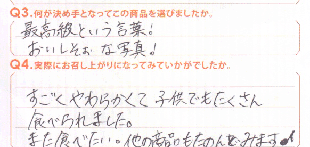 Q3.何が決め手となってこの商品を選びましたか。
最高級という言葉!
おいしそぉな写真!
Q4.実際にお召し上がりになってみていかがでしたか。
すごくやわらかくて子供でもたくさん
食べられました。
また食べたい。他の商品もたのんでみます♪